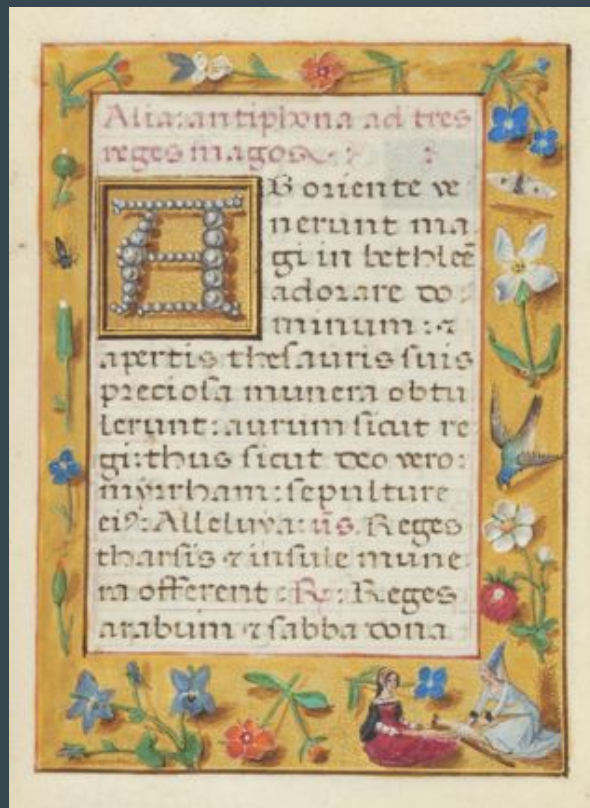 Alia: antiphona ad tres
reges magos
AB oriente ve
nerunt ma
gi in bethleẽ
adorare do
minum: ⁊
apertis thesauris suis
preciosa munera obtu
lerunt: aurum sicut re
gi: thus sicut deo vero:
myrrham: sepulture
eiꝰ: Alleluya: v̄s. Reges
tharsis ⁊ insule mune
ra offerent: ℟: Reges
arabum ⁊ sabba dona